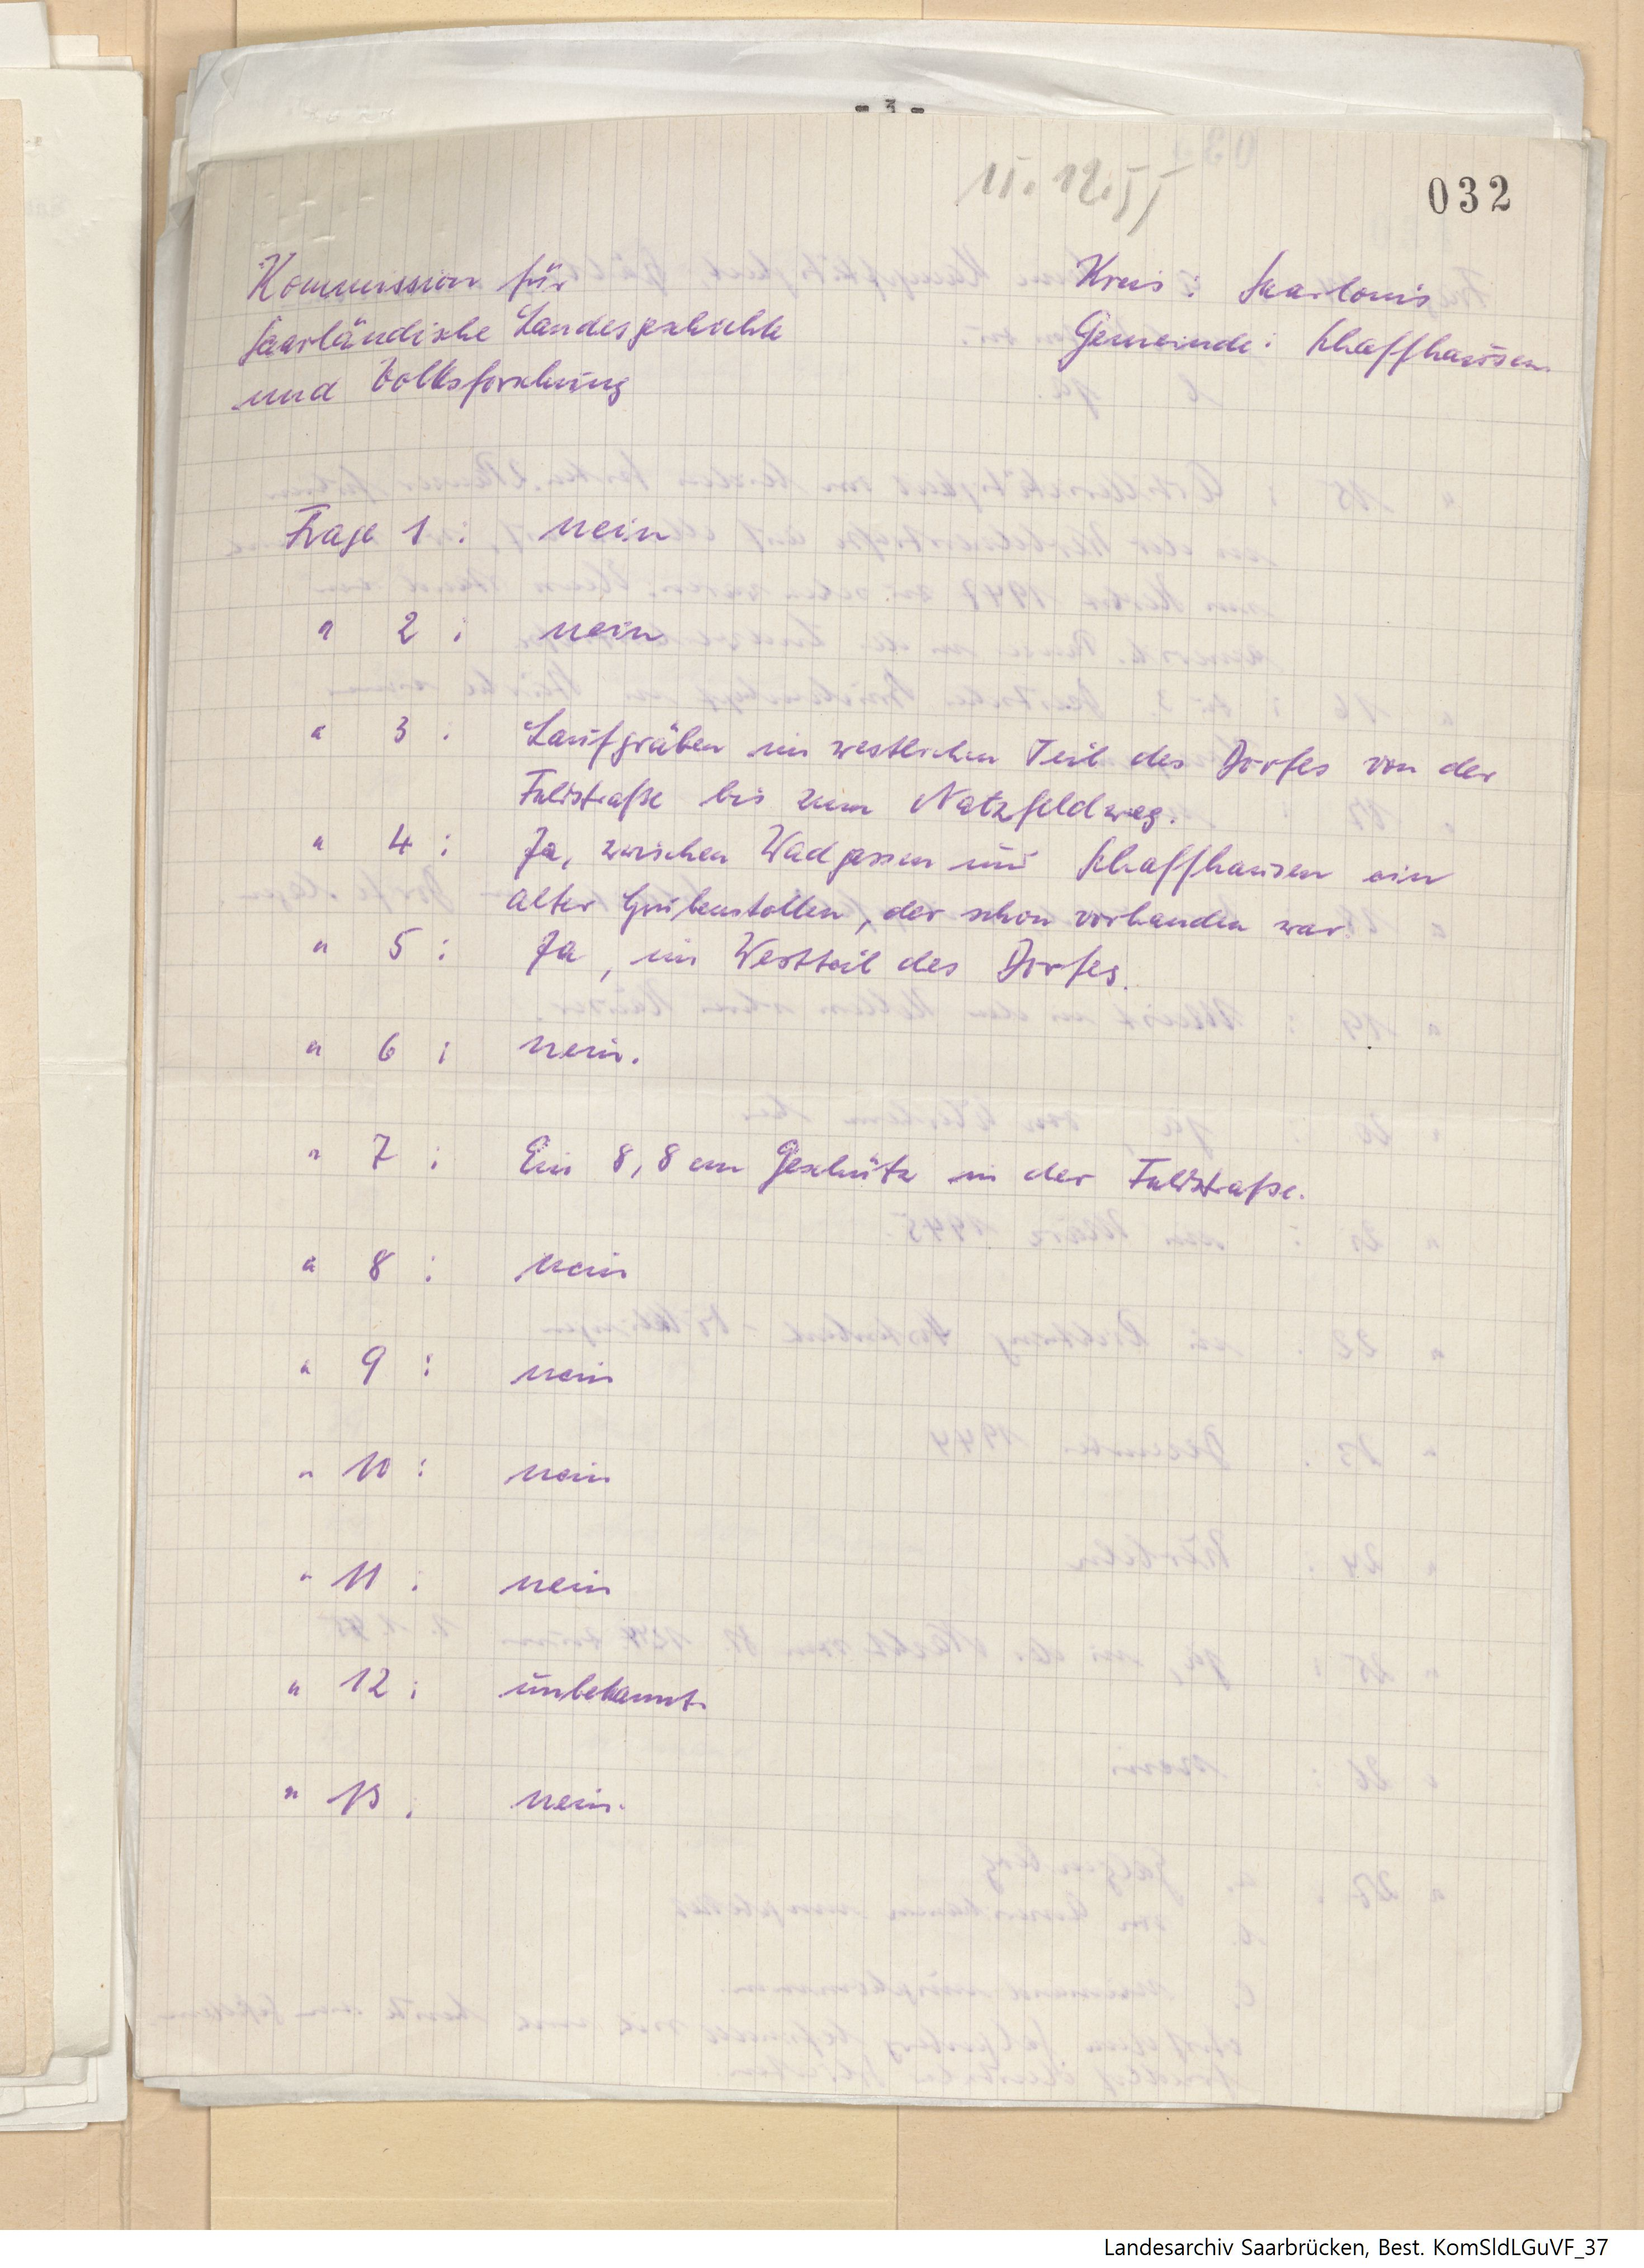 - 3 -
11.12.55
032
Kommission für
Saarländische Landesgeschichte
und Volksforschung
Kreis: Saarlouis
Gemeinde: Schaffhausen
Frage 1: nein
" 2: nein
" 3: Laufgräben im westlichen Teil des Dorfes von der
bis zum Natzfeldweg.
" 4: Ja, zwischen Wadgassen und Schaffhausen ein
alter Grubenstollen, der schon vorhanden war
" 5: Ja, im Westteil des Dorfes.
" 6: nein.
" 7: Ein 8,8 cm Geschütz in der
" 8: nein
" 9: nein
" 10: nein
" 11: nein
" 12: unbekannt.
" 13: nein.
Landesarchiv Saarbrücken, Best. KomSldLGuVF_37